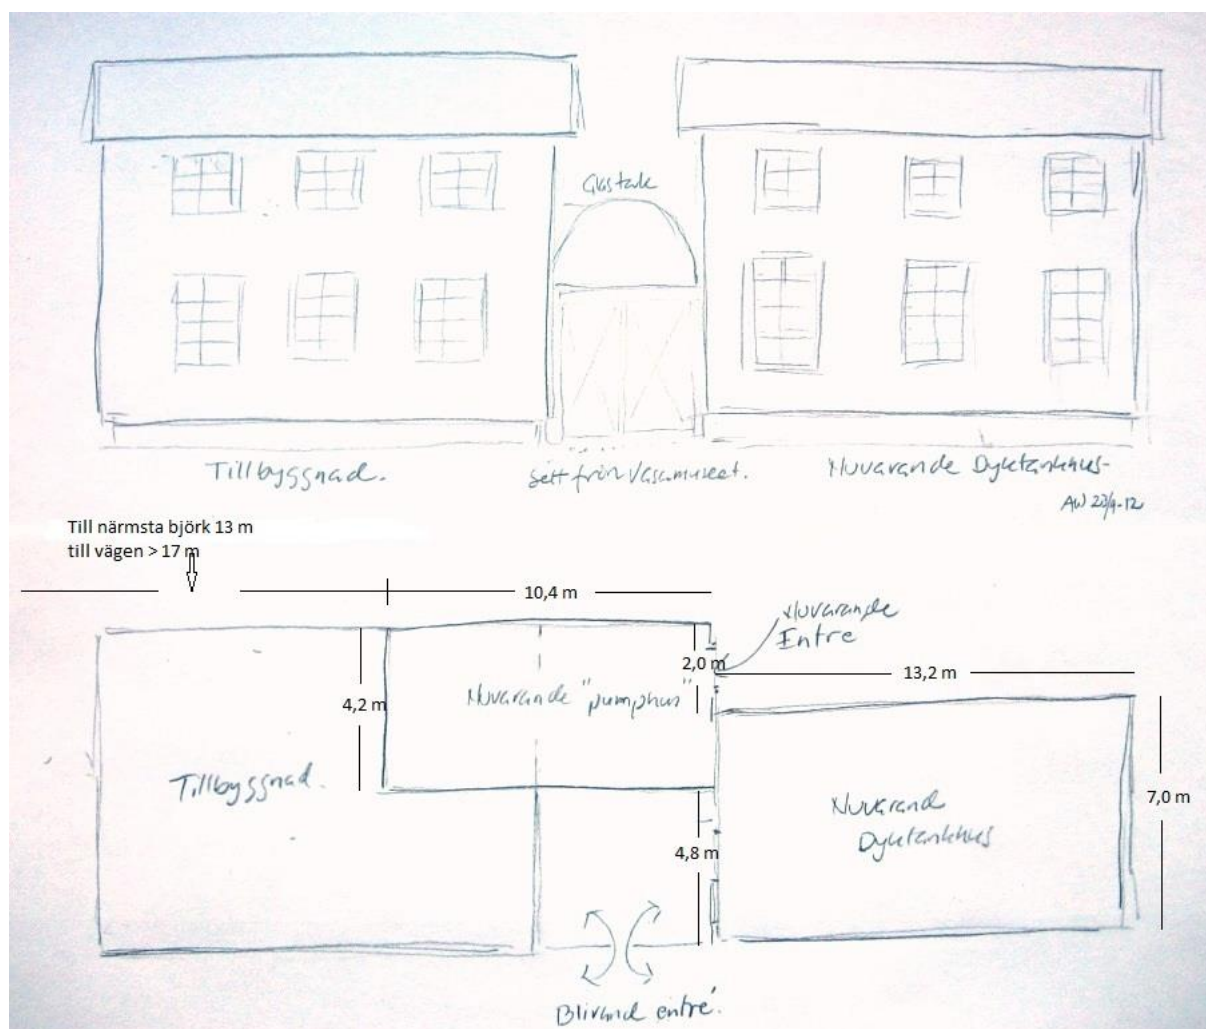 Glastak
Tillbyggnad.
Sett från Vasamuseet.
Nuvarande Dyktankhus-
AW 23/9-12
Till närmsta björk 13 m
till vägen > 17 m
10,4 m
Nuvarande
Entre
2,0 m
13,2 m
4,2 m
Nuvarande "pumphus"
Tillbyggnad.
7,0 m
Nuvarand
Dyktankhus
4,8 m
Blivand entré.